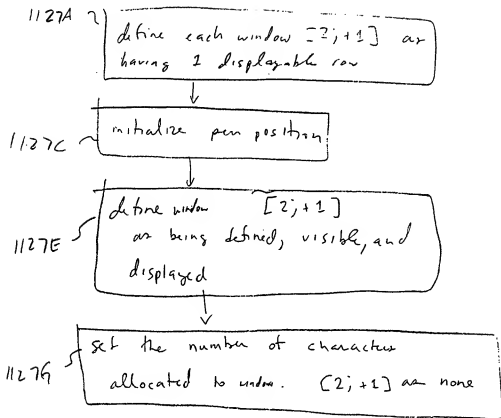 1127A
define each window [2j+1] as
having 1 displayable row
1127C
initialize pen position
1127E
define window [2j+1]
as being defined, visible, and
displayed
1127G
set the number of characters
allocated to window [2j+1] as none